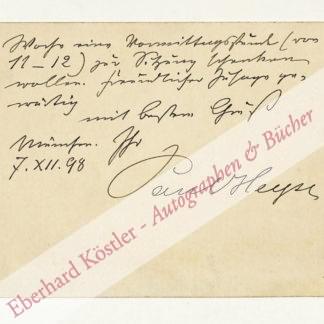 Woche eine Vormittagsstunde (von
11–12) zur Sitzung schenken
wollen. Freundlicher Zusage ge-
wärtig
mit bestem Gruß
München. Ihr
7. XII. 98
Paul Heyse
Eberhard Köstler - Autographen & Bücher